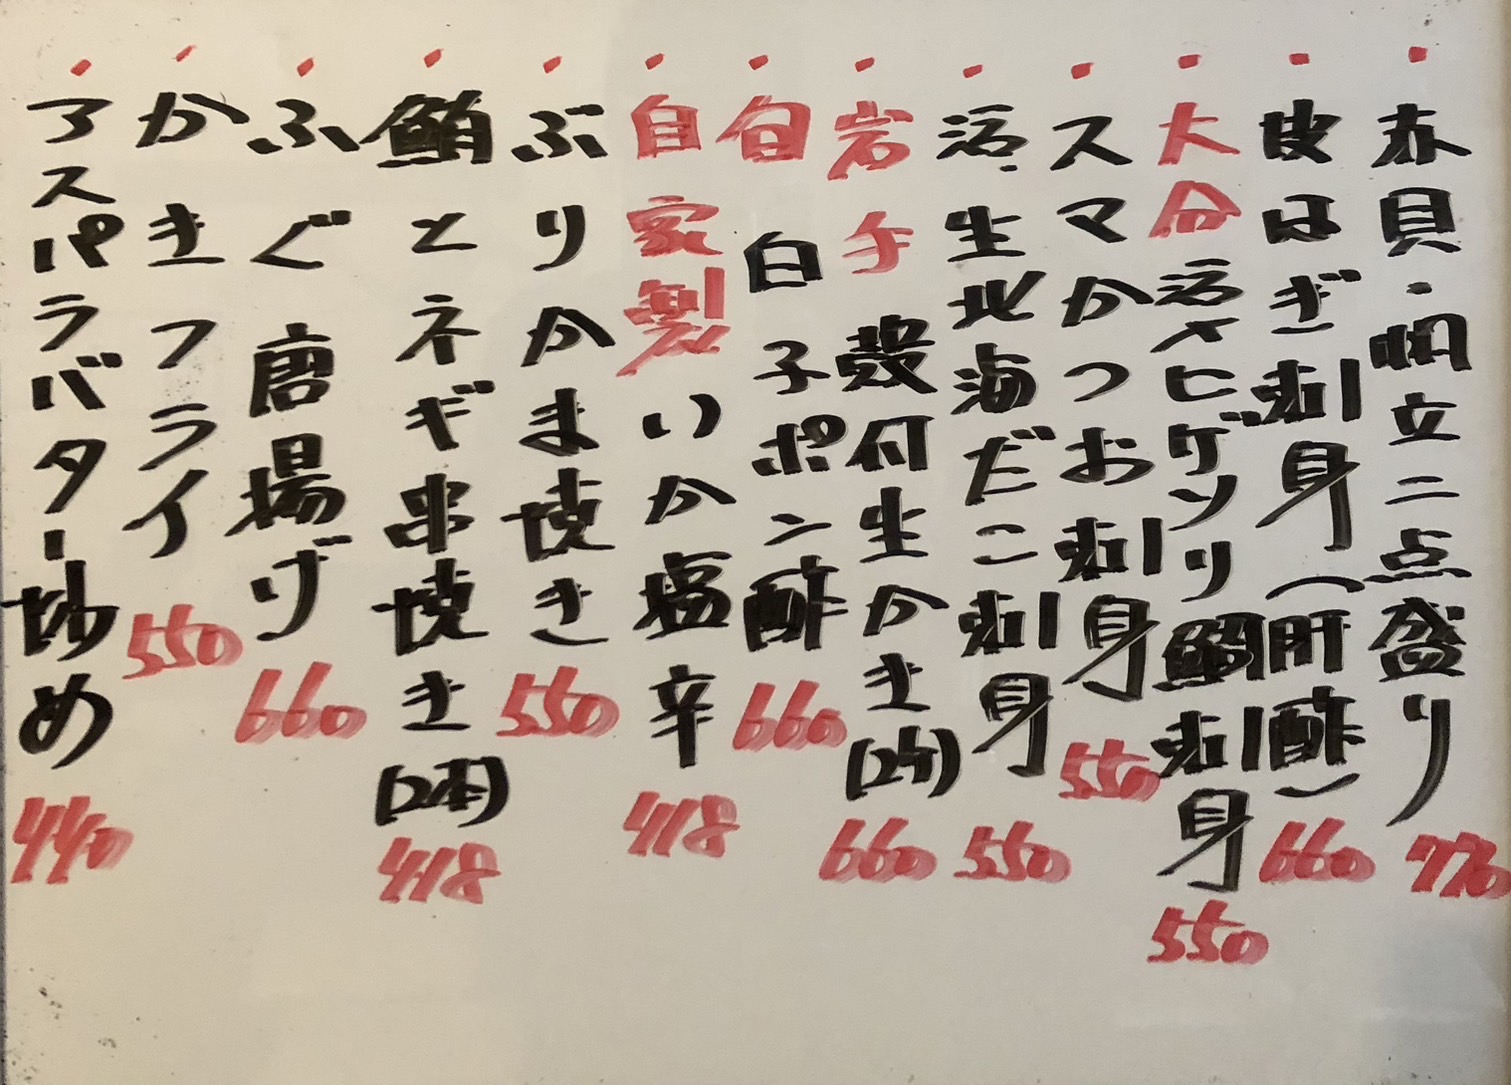 ・赤貝・帆立二点盛り 770
・皮はぎ刺身(肝酢) 660
・大分活〆ヒゲソリ鯛刺身 550
・スマかつお刺身 550
・活〆生北海だこ刺身 550
・岩手殻付生かき(2ケ) 660
・旬白子ポン酢 660
・自家製いか塩辛 418
・ぶりかま焼き 550
・鮪とネギ串焼き(2本) 418
・ふぐ唐揚げ 660
・かきフライ 550
・アスパラバター炒め 440